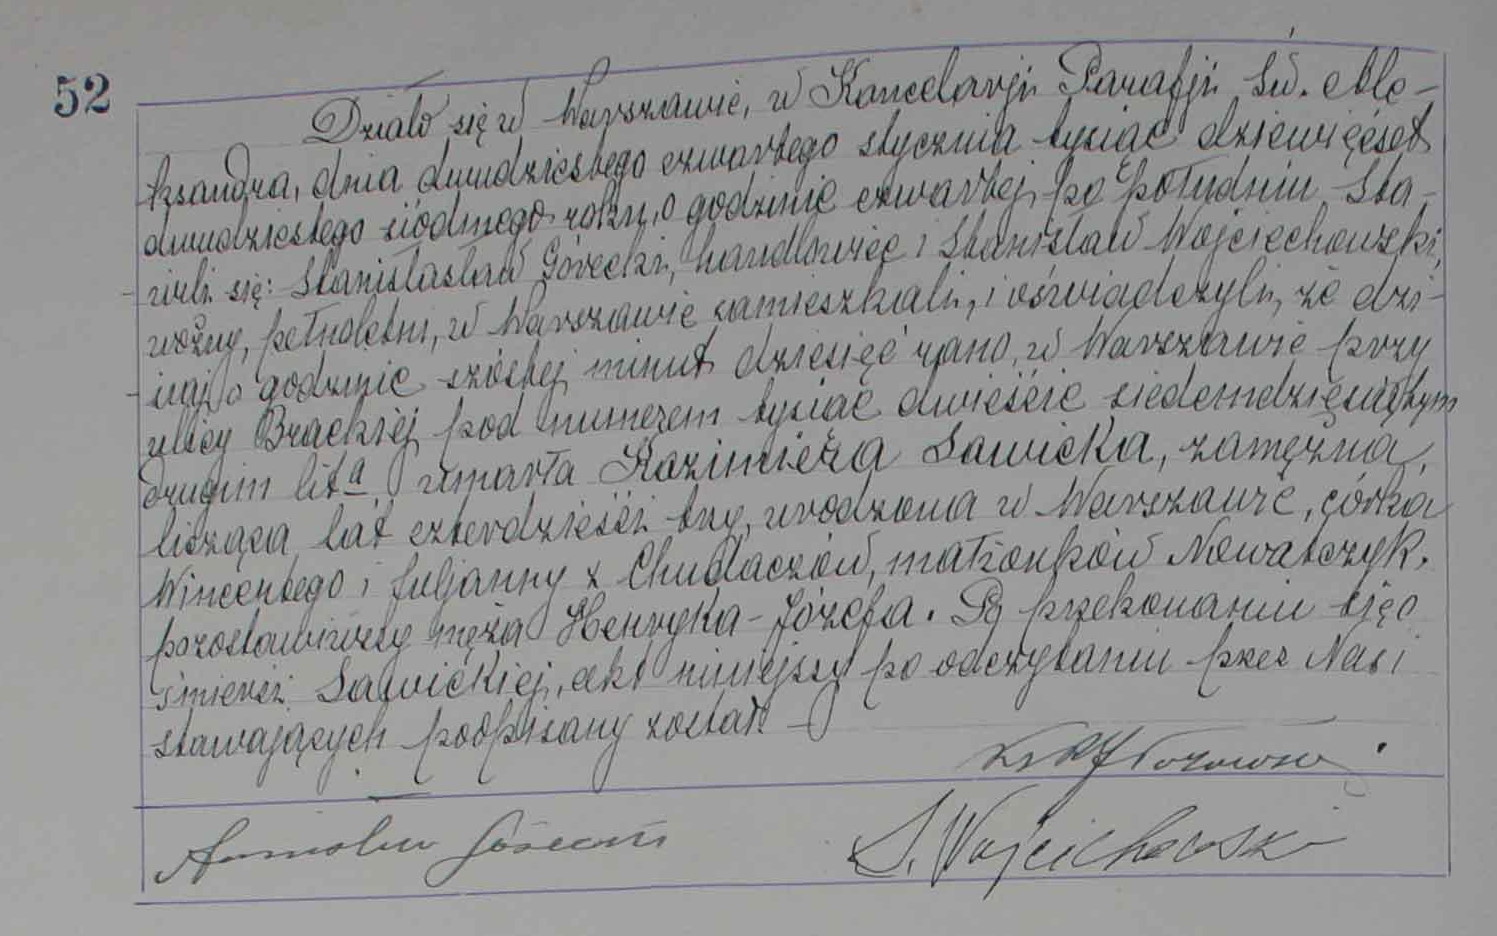 52
Działo się w Warszawie, w Kancelarji Parafji Św. Ale-
ksandra, dnia dwudziestego czwartego stycznia tysiąc dziewięćset
dwudziestego siódmego roku, o godzinie czwartej po południu. Sta-
wili się: Stanisłastaw Górecki, handlowiec i Stanisław Wojciechowski,
woźny, pełnoletni, w Warszawie zamieszkali, i oświadczyli, że dzi-
siaj o godzinie szóstej minut dziesięć rano, w Warszawie przy
ulicy Brackiej pod numerem tysiąc dwieście siedemdziesiątym
drugim lit a, umarła Kazimiera Sawicka, zamężna,
licząca lat czterdzieści trzy, urodzona w Warszawie, córka
Wincentego i Juljanny z Chudaczów, małżonków Nowatczyk.
pozostawiwszy męża Henryka-Józefa. Po przekonaniu się o
śmierci Sawickiej, akt niniejszy po odczytaniu przez Nas i
stawających podpisany został.
Stanisław Górecki
S. Wojciechowski